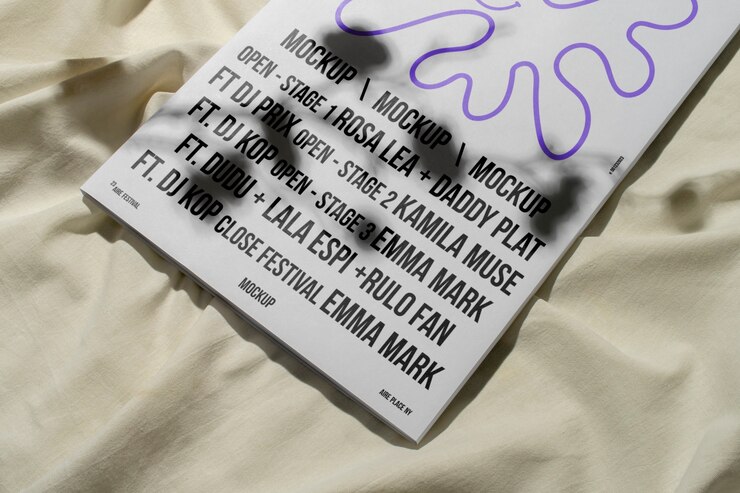 MOCKUP \ MOCKUP \ MOCKUP
OPEN - STAGE 1 ROSA LEA + DADDY PLAT
FT DJ PRIX OPEN - STAGE 2 KAMILA MUSE
FT. DJ KOP OPEN - STAGE 3 EMMA MARK
FT. DUDU + LALA ESPI +RULO FAN
FT. DJ KOP CLOSE FESTIVAL EMMA MARK
23
AIRE FESTIVAL
MOCKUP
AIRE PLACE NY